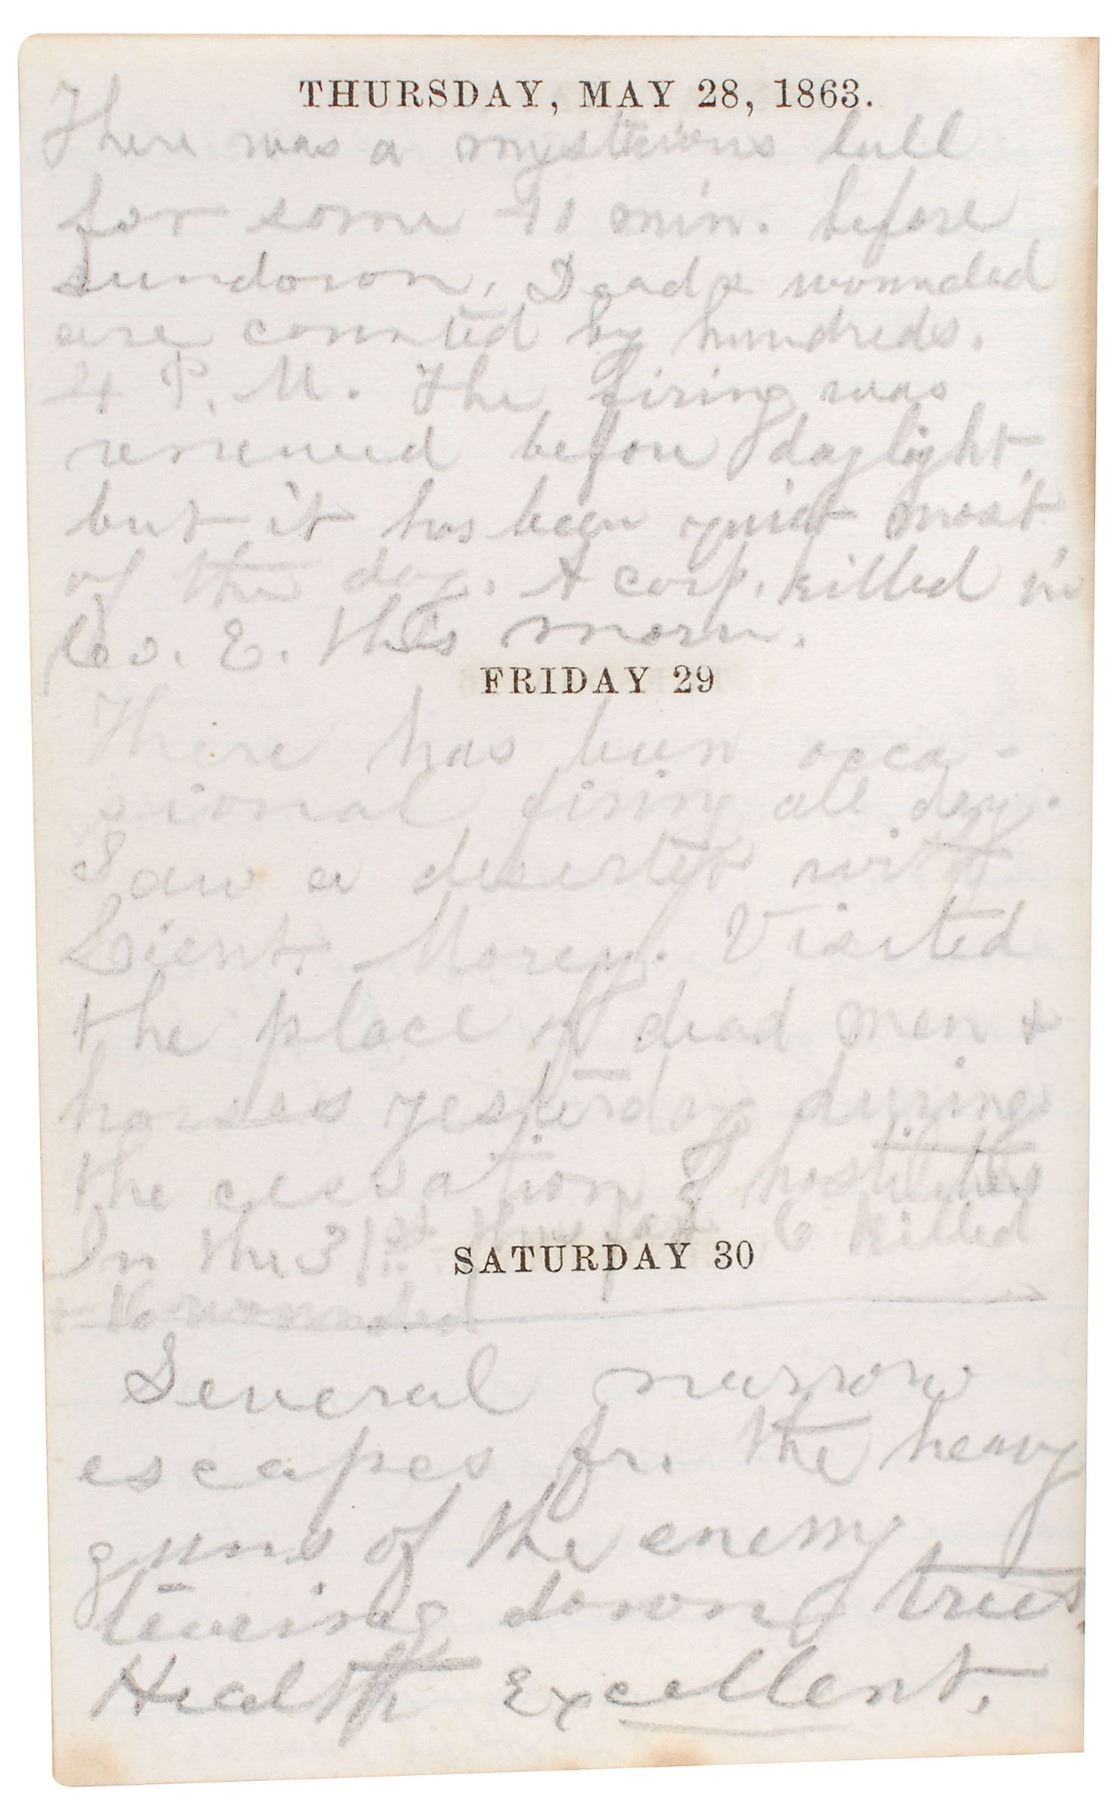 THURSDAY, MAY 28, 1863.
There was a mysterious lull
for some 90 min. before
sundown. Dead & wounded
are counted by hundreds.
4 P. M. The firing was
renewed before daylight,
but it has been quiet most
of the day. A corp. killed in
Co. E. this morn.
FRIDAY 29
There has been occa-
sional firing all day.
Saw a deserter with
Lieut. Morey. Visited
the place of dead men &
horses yesterday during
the cessation of hostilities
In the 31st thus far 6 killed
SATURDAY 30
+ 16 wounded
Several narrow
escapes fr. the heavy
guns of the enemy
tearing down trees.
Health Excellent.